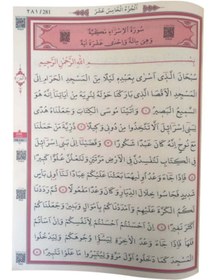 الجزء الخامس عشر
٢٨١ / 281
سورة الإسراء مكية
وهي مائة وإحدى عشرة آية
بسم الله الرحمن الرحيم
سبحان الذي أسرى بعبده ليلا من المسجد الحرام إلى
المسجد الأقصا الذي باركنا حوله لنريه من آياتنا إنه هو
السميع البصير ١ وآتينا موسى الكتاب وجعلناه هدى
لبني إسرائيل ألا تتخذوا من دوني وكيلا ٢ ذرية من حملنا
مع نوح إنه كان عبدا شكورا ٣ وقضينا إلى بني إسرائيل
في الكتاب لتفسدن في الأرض مرتين ولتعلن علوا كبيرا ٤
فإذا جاء وعد أوليهما بعثنا عليكم عبادا لنا أولي بأس
شديد فجاسوا خلال الديار وكان وعدا مفعولا ٥ ثم
رددنا لكم الكرة عليهم وأمددناكم بأموال وبنين وجعلناكم
أكثر نفيرا ٦ إن أحسنتم أحسنتم لأنفسكم وإن أسأتم
فلها فإذا جاء وعد الآخرة ليسوؤا وجوهكم وليدخلوا
المسجد كما دخلوه أول مرة وليتبروا ما علوا تتبيرا ٧